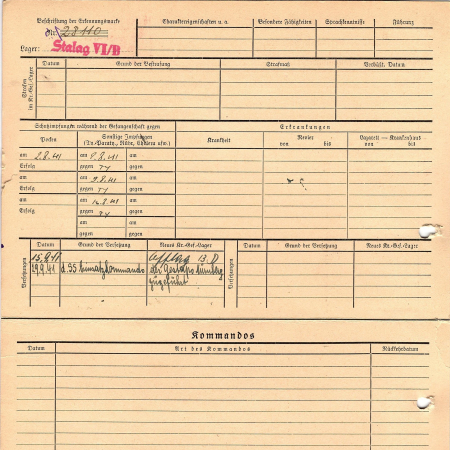 Beschriftung der Erkennungsmarke
Nr. 28110
Lager: Stalag VI/B
Charaktereigenschaften u. a.
Besondere Fähigkeiten
Sprachkenntnisse
Führung
Strafen im Kr.-Gef.-Lager
Datum
Grund der Bestrafung
Strafmaß
Verbüßt, Datum
Schutzimpfungen während der Gefangenschaft gegen
Erkrankungen
Pocken
Sonstige Impfungen
(Ty.-Paraty., Ruhr, Cholera usw.)
Krankheit
Revier
von bis
Lazarett — Krankenhaus
von bis
am 2.8.41 am 2.8.41 am
Erfolg gegen TY gegen
am am 9.8.41 am
Erfolg gegen TY gegen
am am 16.8.41 am
Erfolg gegen TY gegen
am am
gegen gegen
Versetzungen
Datum
Grund der Versetzung
Neues Kr.-Gef.-Lager
Versetzungen
Datum
Grund der Versetzung
Neues Kr.-Gef.-Lager
15.9.41 Offlag 13.
29.9.41 d. SS Einsatzkommando der Gestapo Nürnberg
zugeführt
Kommandos
Datum
Art des Kommandos
Rückkehrdatum